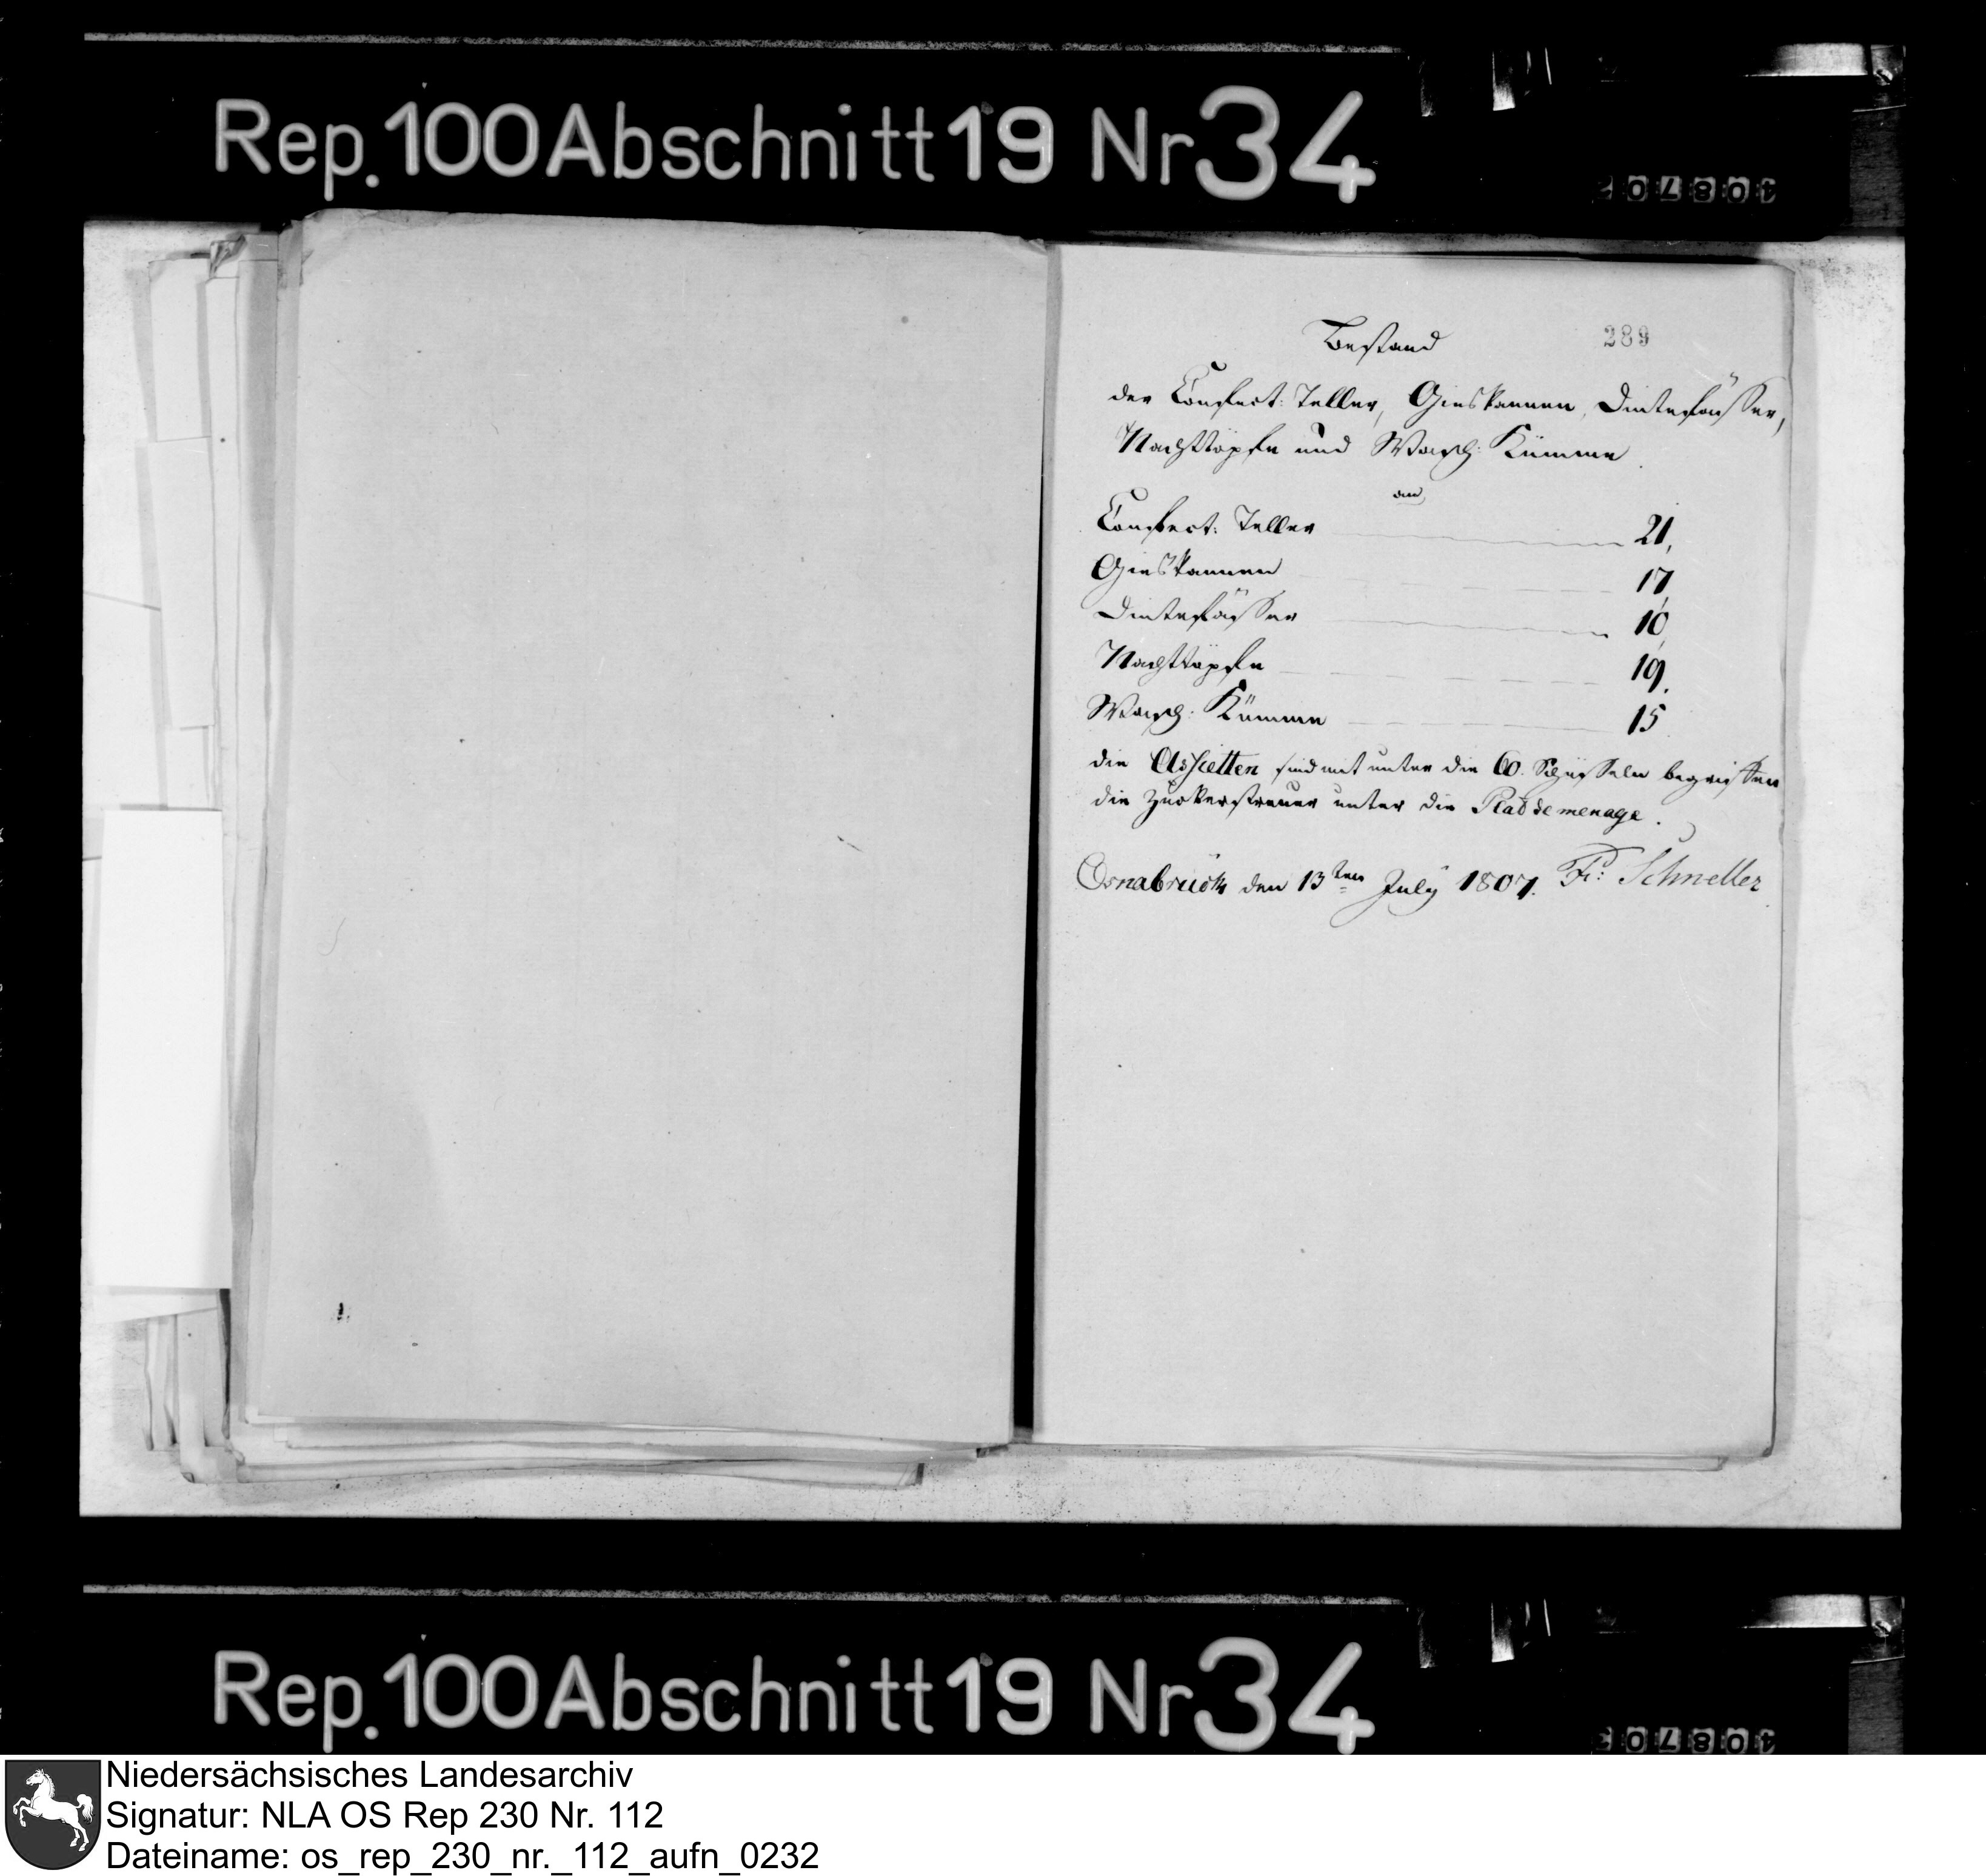 Rep. 100 Abschnitt 19 Nr 34
Bestand
289
der Confect: Teller, Gieskannen, Dintefässer,
Nachttöpfe und Wasch: Kümme.
an
Confect: Teller 21,
Gieskannen 17,
Dintefässer 10,
Nachttöpfe 19.
Wasch: Kümme 15
die Assietten sind mit unter die 60. Schüsseln begriffen
die Zuckerstreuer unter die Plad de menage.
Osnabrück den 13ten July 1807. Fr: Schneller
Rep. 100 Abschnitt 19 Nr 34
Niedersächsisches Landesarchiv
Signatur: NLA OS Rep 230 Nr. 112
Dateiname: os_rep_230_nr._112_aufn_0232